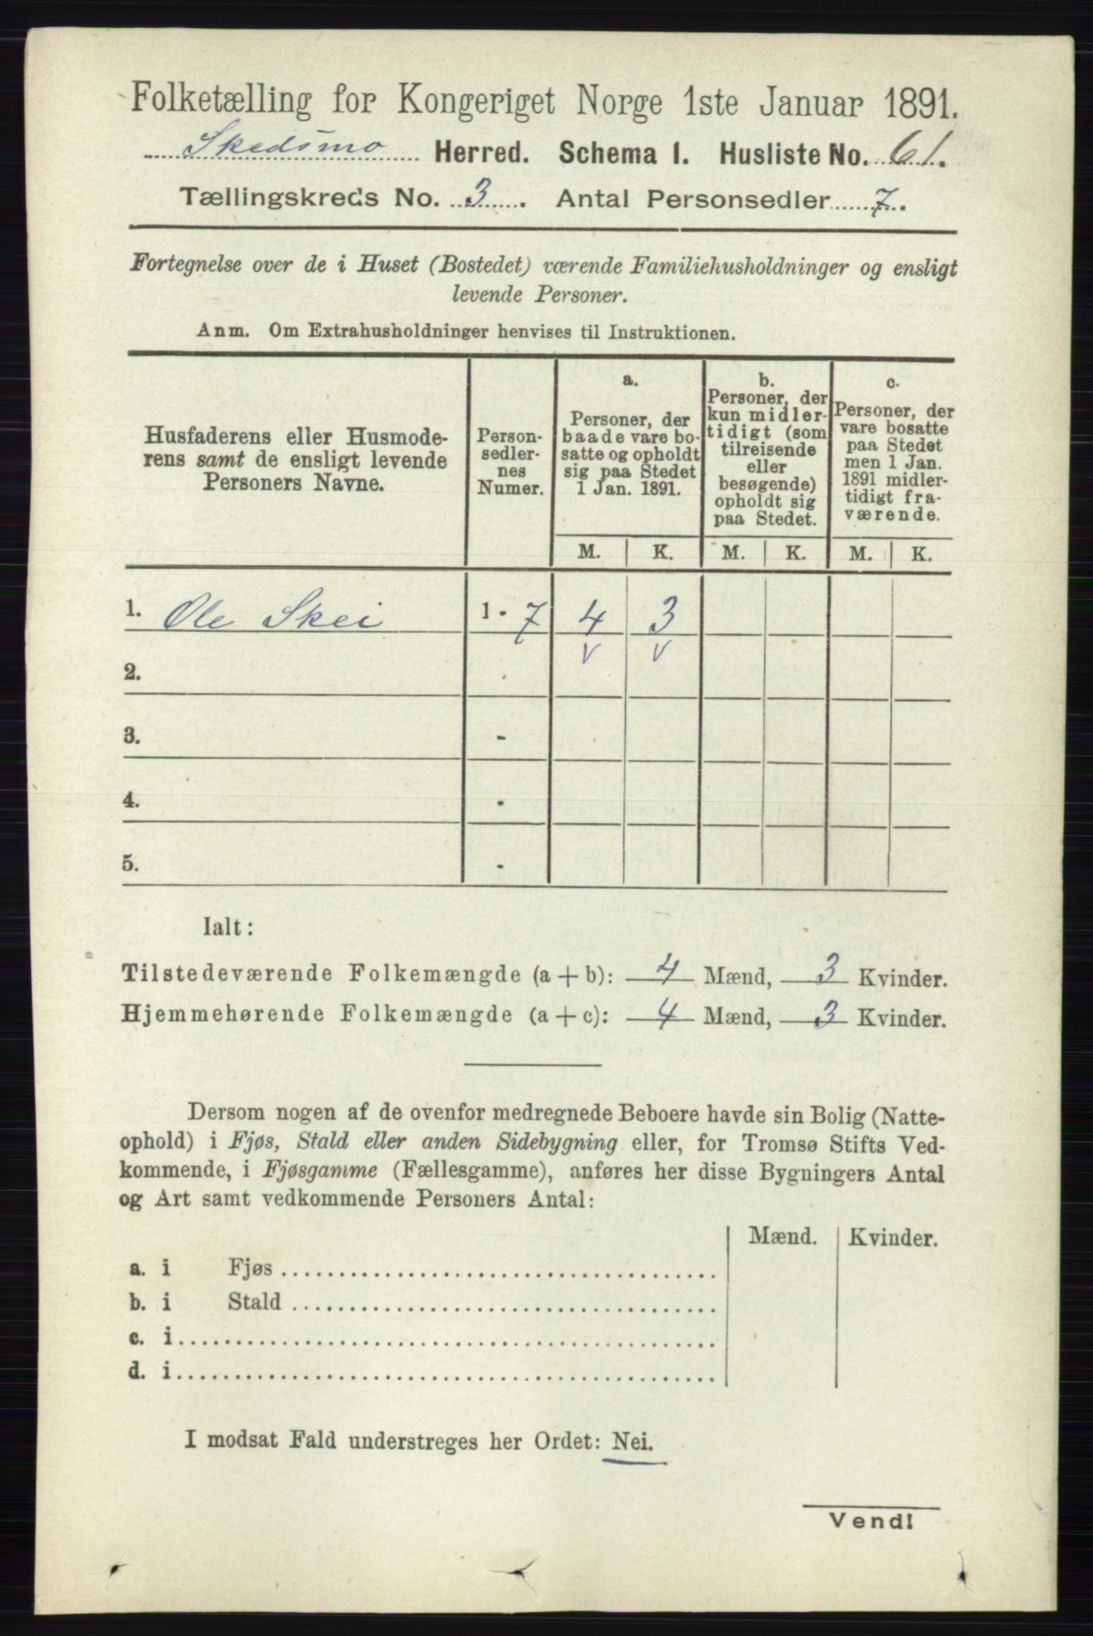 Folketælling for Kongeriget Norge 1ste Januar 1891.
Skedsmo Herred. Schema I. Husliste No. 61.
Tællingskreds No. 3. Antal Personsedler 7.
Fortegnelse over de i Huset (Bostedet) værende Familiehusholdninger og ensligt
levende Personer.
Anm. Om Extrahusholdninger henvises til Instruktionen.
Husfaderens eller Husmode-
rens samt de ensligt levende
Personers Navne.
Person-
sedler-
nes
Numer.
a.
Personer, der
baade vare bo-
satte og opholdt
sig paa Stedet
1 Jan. 1891.
b.
Personer, der
kun midler-
tidigt (som
tilreisende
eller
besøgende)
opholdt sig
paa Stedet.
c.
Personer, der
vare bosatte
paa Stedet
men 1 Jan.
1891 midler-
tidigt fra-
værende.
M. K. M. K. M. K.
1. Ole Skei 1 - 7 4 3
v v
2.
3. -
4. -
5. -
Ialt:
Tilstedeværende Folkemængde (a + b): 4 Mænd, 3 Kvinder.
Hjemmehørende Folkemængde (a + c): 4 Mænd, 3 Kvinder.
Dersom nogen af de ovenfor medregnede Beboere havde sin Bolig (Natte-
ophold) i Fjøs, Stald eller anden Sidebygning eller, for Tromsø Stifts Ved-
kommende, i Fjøsgamme (Fællesgamme), anføres her disse Bygningers Antal
og Art samt vedkommende Personers Antal:
Mænd. Kvinder.
a. i Fjøs
b. i Stald
c. i
d. i
I modsat Fald understreges her Ordet: Nei.
Vend!